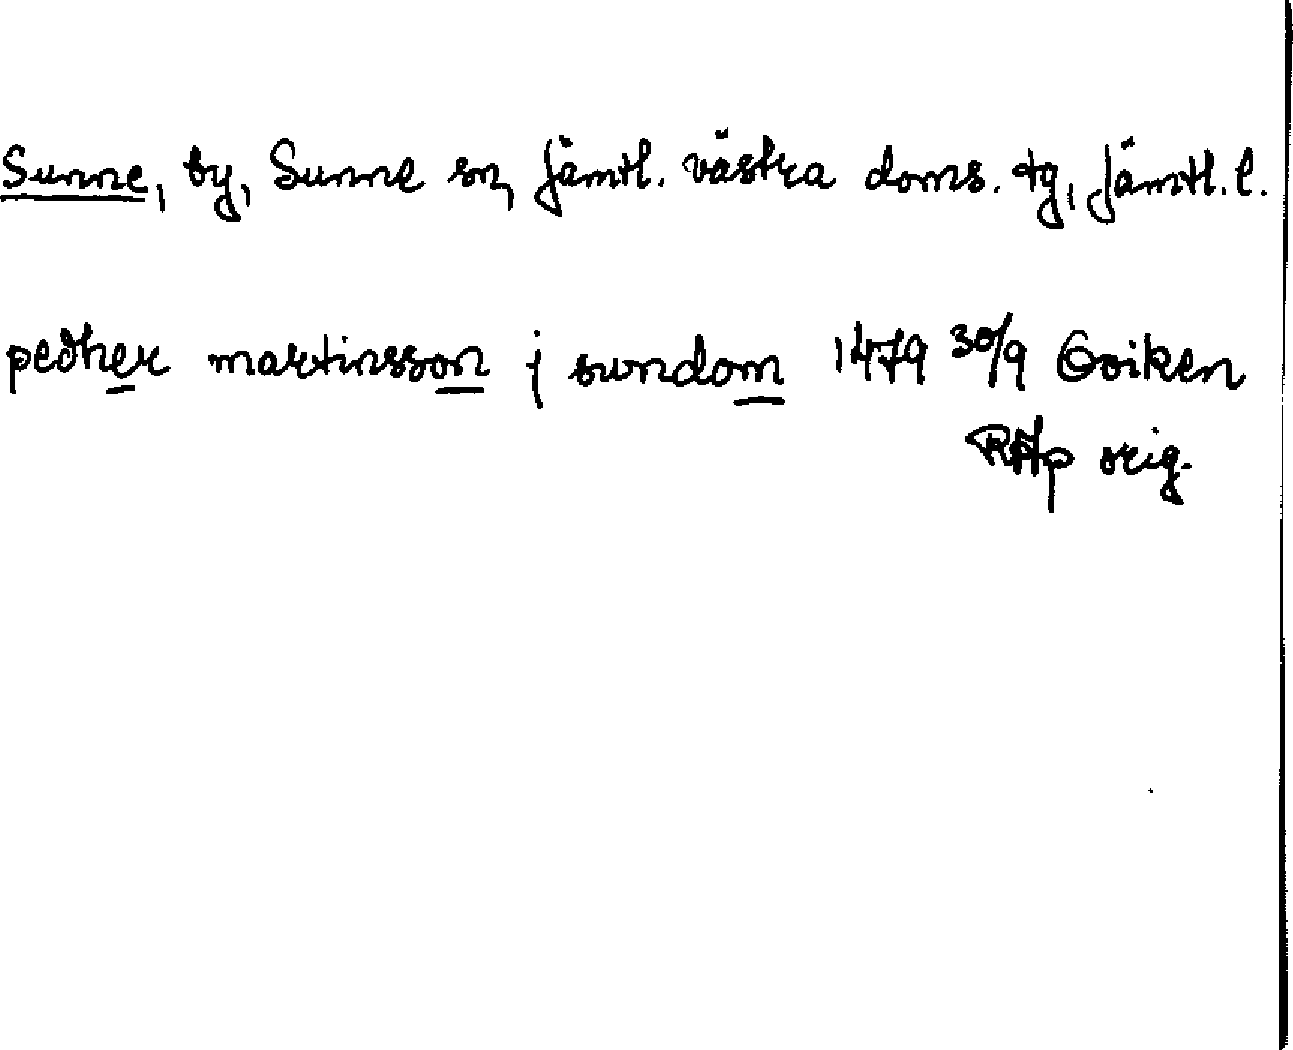 Sunne, by, Sunne sn, Jämtl. västra doms. tg, Jämtl. l.
pedher martinsson j sundom 1479 30/9 Goiken
RAp orig.